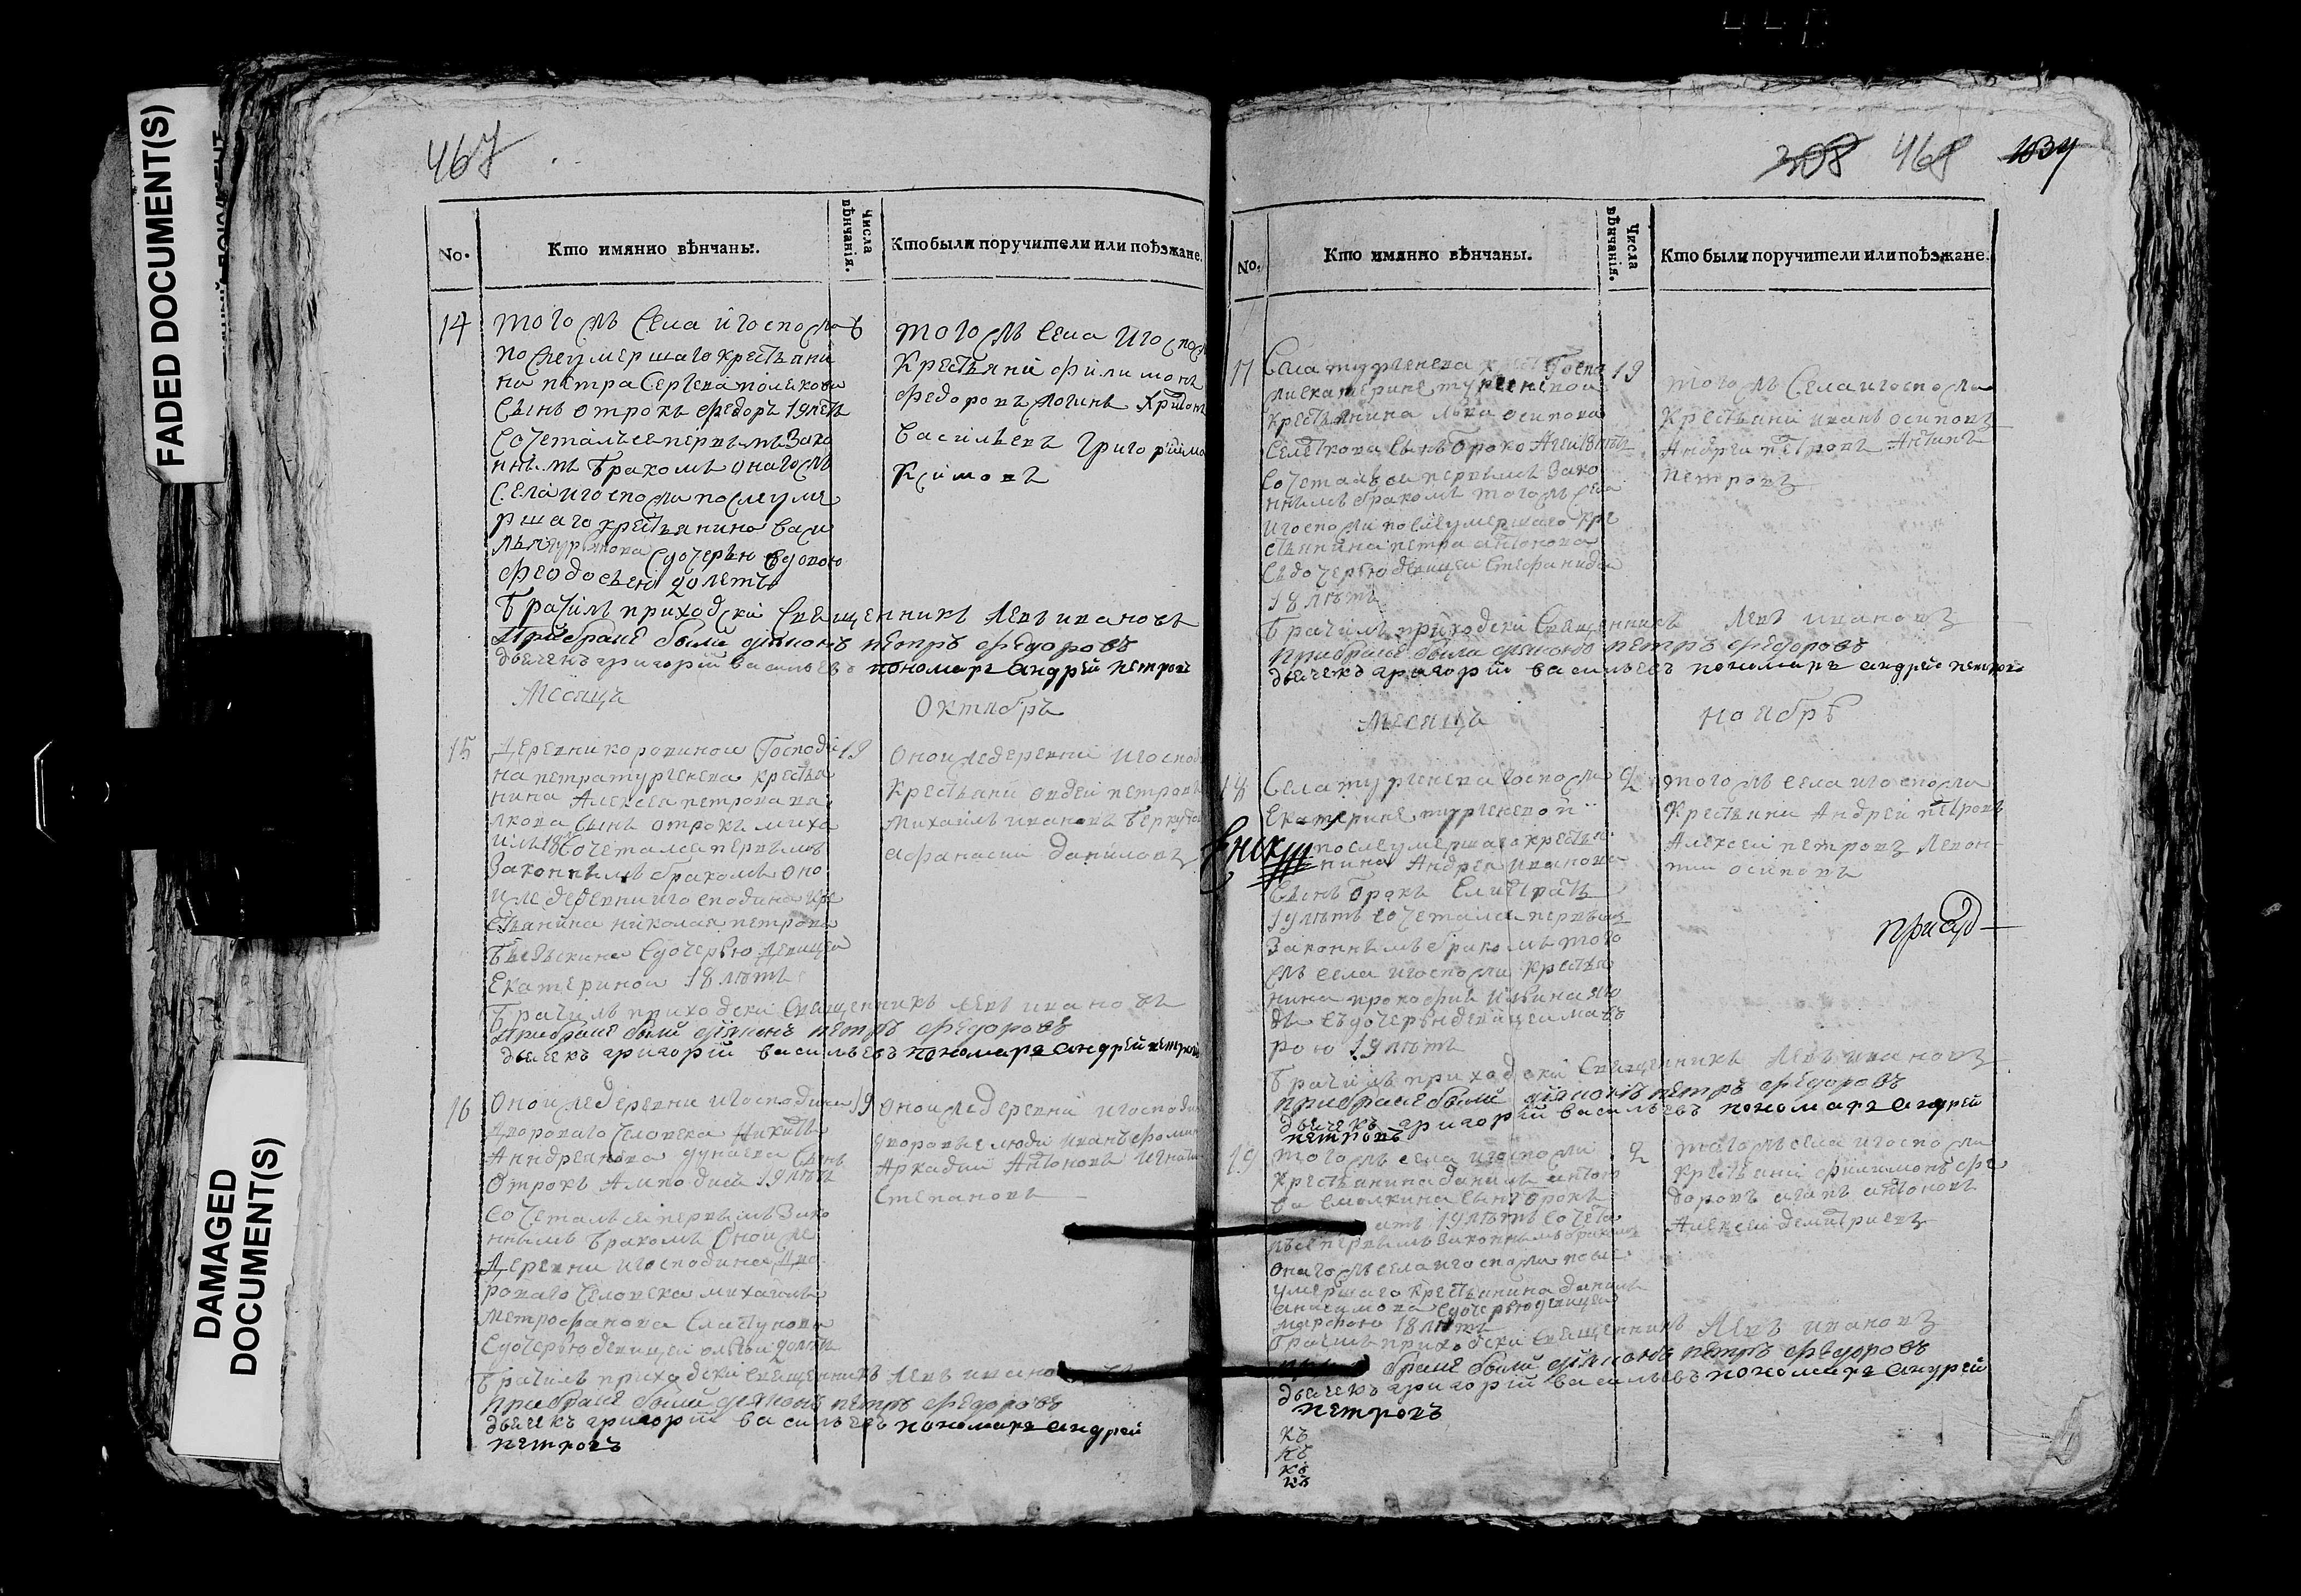 FADED DOCUMENT(S)
DAMAGED DOCUMENT(S)
467
No.
Кто имянно вѣнчаны.
Числа вѣнчанія.
Кто были поручители или поѣзжане.
14
того жъ села и госпожа
после умершаго крестьяни
на петра Сергева
Сынъ отрокъ федоръ 19 летъ
сочеталъсе первымъ зако
ннымъ бракомъ онагожъ
села и госпожи после уме
ршаго крестьянина васи
Сдочерью вдовою
феодосьею 20 летъ
6
того жъ села и госпож
Крестьяни филимонъ
федоровъ логинъ
васильевъ григорий ма
Ксимовъ
Брачилъ приходски священникъ Левъ ивановъ
При браке были диаконъ петръ федоровъ
дьячекъ григорий васильевъ пономарь андрей петровъ
Месяцъ Октябрь
15
Деревни коровиной Господи
на петра тургенева крестья
нина Алексея петрова
сынъ отрокъ миха
илъ 18 сочетался первымъ
Законнымъ бракомъ оно
иже деревни и господина кре
стьянина николая петрова
Сдочерью девицей
Екатериной 18 лѣтъ
19
Оной же деревни и господ
Крестьяни авдей петровъ
михаилъ ивановъ
афанасий даниловъ
Брачилъ приходски священникъ левъ ивановъ
При браке были диаконъ петръ федоровъ
дьячекъ григорий васильевъ пономарь андрей петровъ
16
Оной же деревни и господина
Дворового человека Никиты
Андреянова дунаева сынъ
Отрокъ 19 лѣтъ
сочеталъся первымъ зако
ннымъ бракомъ Оной же
Деревни и господина дво
роваго человека михаилы
митрофанова
Сдочерью девицей 20 лѣтъ
19
оной же деревни и господи
дворовые люди иванъ фомин
Аркадий Антоновъ игнати
Степановъ
Брачилъ приходски священникъ Левъ ивано
При браке были диаконъ петръ федоровъ
дьячекъ григорий васильевъ пономарь андрей
петровъ
308 468 1034
No.
Кто имянно вѣнчаны.
Числа вѣнчанія.
Кто были поручители или поѣзжане.
17
Села тургенева Госпо
жи екатерине тургеневой
крестьянина льва осипова
18 лѣтъ
сочеталъся первымъ зако
ннымъ бракомъ того жъ села
и госпожи после умершаго кре
стьянина петра антонова
съдочерью девицей стефанидой
18 лѣтъ
19
того жъ села и госпожи
крестьяни иванъ осиповъ
Андрей петровъ Антипъ
петровъ
Брачилъ приходски священникъ Левъ ивановъ
при браке были диаконъ петръ федоровъ
дьячекъ григорий васильевъ пономарь андрей петровъ
Месяцъ ноябрь
18
Села тургенева госпожи
екатерине тургеневой
после умершаго крестья
нина Андрея иванова
сынъ отрокъ
19 лѣтъ сочетался первымъ
законнымъ бракомъ того
жъ села и госпожи крестья
нина прокофия
съдочерью девицей мав
рою 19 лѣтъ
2
того жъ села и госпожи
Крестьяни Андрей петровъ
Алексей петровъ Леон
тий осиповъ
Брачилъ приходски священникъ Левъ ивановъ
при браке были диаконъ петръ федоровъ
дьячекъ григорий васильевъ пономарь андрей
петровъ
19
того жъ села и госпожи
крестьянина данилы антоно
ва сынъ отрокъ
19 лѣтъ сочета
лъсе первымъ законнымъ бракомъ
онаго жъ села и госпожи после
умершаго крестьянина данилы
анисимова сдочерью девицей
марфою 18 лѣтъ
2
того жъ села и госпожи
крестьяни филимонъ фе
доровъ агапъ антоновъ
Алексей дмитриевъ
Брачилъ приходски священникъ Левъ ивановъ
браке были диаконъ петръ федоровъ
дьячекъ григорий васильевъ пономарь андрей
петровъ
къ
къ
къ
къ